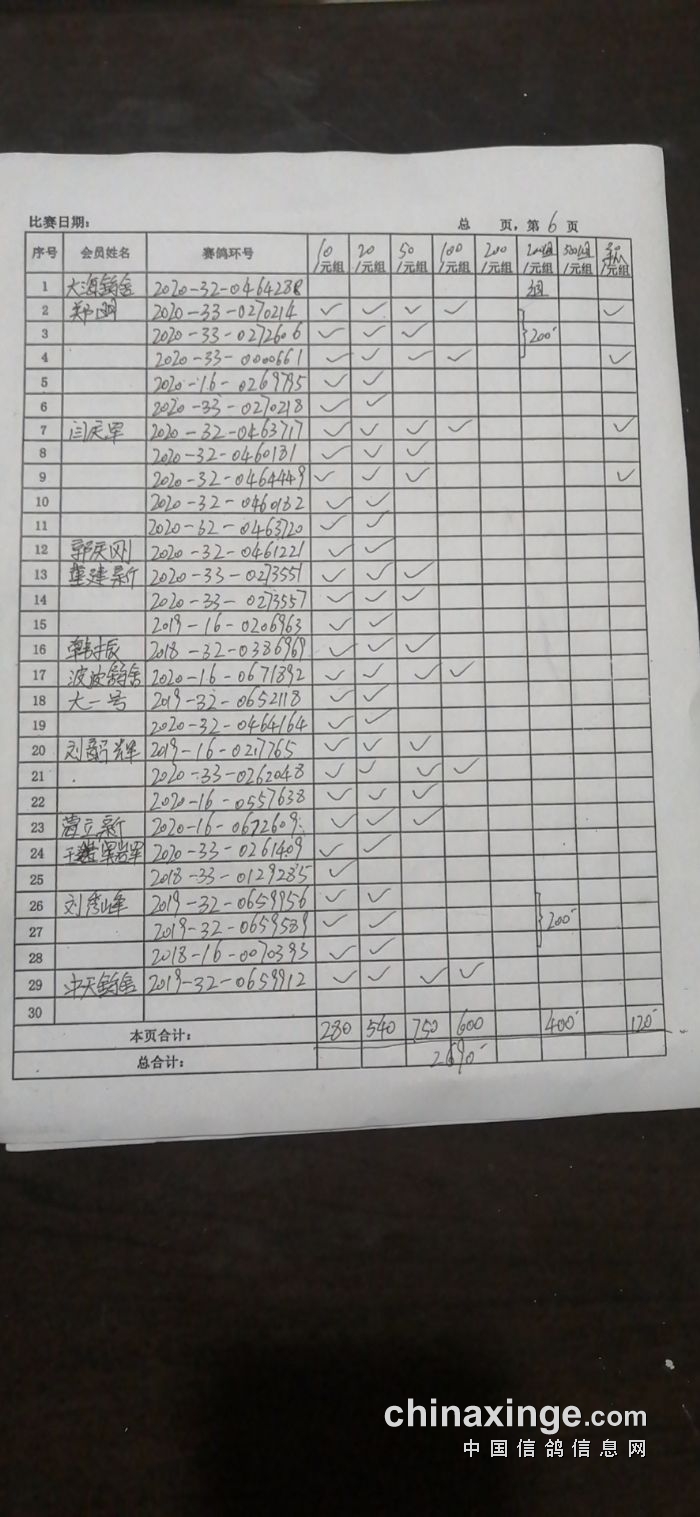 比赛日期: 总 页,第 6 页
序号 会员姓名 赛鸽环号 10/元组 20/元组 50/元组 100/元组 200/元组 /元组 500组/元组 /元组
1 大海鸽舍 2020-32-0464288 组
2 2020-33-0270214 ✓ ✓ ✓ ✓ ✓
3 2020-33-0272606 ✓ ✓ ✓ 200
4 2020-33-0000661 ✓ ✓ ✓ ✓ ✓
5 2020-16-0269795 ✓ ✓
6 2020-33-0270218 ✓ ✓
7 闫庆军 2020-32-0463717 ✓ ✓ ✓ ✓ ✓
8 2020-32-0460181 ✓ ✓ ✓
9 2020-32-0464449 ✓ ✓ ✓ ✓
10 2020-32-0460132 ✓ ✓
11 2020-32-0463720 ✓ ✓
12 郭庆刚 2020-32-0461221 ✓ ✓
13 建新 2020-33-0273551 ✓ ✓ ✓
14 2020-33-0273557 ✓ ✓ ✓
15 2019-16-0206963 ✓ ✓
16 韩振 2018-32-0386969 ✓ ✓ ✓
17 波波鸽舍 2020-16-0671892 ✓ ✓ ✓ ✓
18 大一号 2019-32-0652118 ✓ ✓
19 2020-32-0464164 ✓ ✓
20 2019-16-0217765 ✓ ✓ ✓
21 2020-33-0262048 ✓ ✓ ✓ ✓
22 2020-16-0557638 ✓ ✓ ✓
23 立新 2020-16-0672609 ✓ ✓ ✓
24 2020-33-0261409 ✓ ✓
25 2018-33-0129285 ✓
26 刘秀峰 2019-32-0659956 ✓ ✓
27 2019-32-0659589 ✓ ✓ 200
28 2018-16-0070395 ✓ ✓
29 中天鸽舍 2019-32-0659912 ✓ ✓ ✓ ✓
30
本页合计: 280 540 750 600 400 120
总合计: 2690
chinaxinge.com
中国信鸽信息网